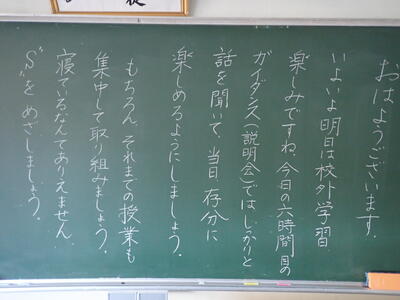 おはようございます。
いよいよ明日は校外学習
楽しみですね。今日の六時間目の
ガイダンス(説明会)ではしっかりと
話を聞いて、当日存分に
楽しめるようにしましょう。
もちろん、それまでの授業も
集中して取り組みましょう。
寝ているなんてありえません。
"S"をめざしましょう。